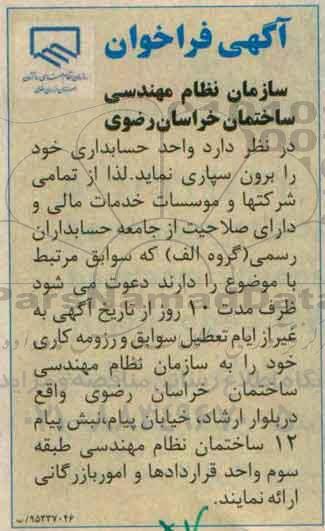 آگهی فراخوان
سازمان نظام مهندسی
ساختمان خراسان رضوی
در نظر دارد واحد حسابداری خود
را برون سپاری نماید.لذا از تمامی
شرکتها و موسسات خدمات مالی و
دارای صلاحیت از جامعه حسابداران
رسمی(گروه الف) که سوابق مرتبط
با موضوع را دارند دعوت می شود
ظرف مدت ۱۰ روز از تاریخ آگهی به
غیر از ایام تعطیل سوابق و رزومه کاری
خود را به سازمان نظام مهندسی
ساختمان خراسان رضوی واقع
دربلوار ارشاد، خیابان پیام،نبش پیام
۱۲ ساختمان نظام مهندسی طبقه
سوم واحد قراردادها و اموربازرگانی
ارائه نمایند.
۹۵۲۳۷۰۴۶/ب
ParsNamadData